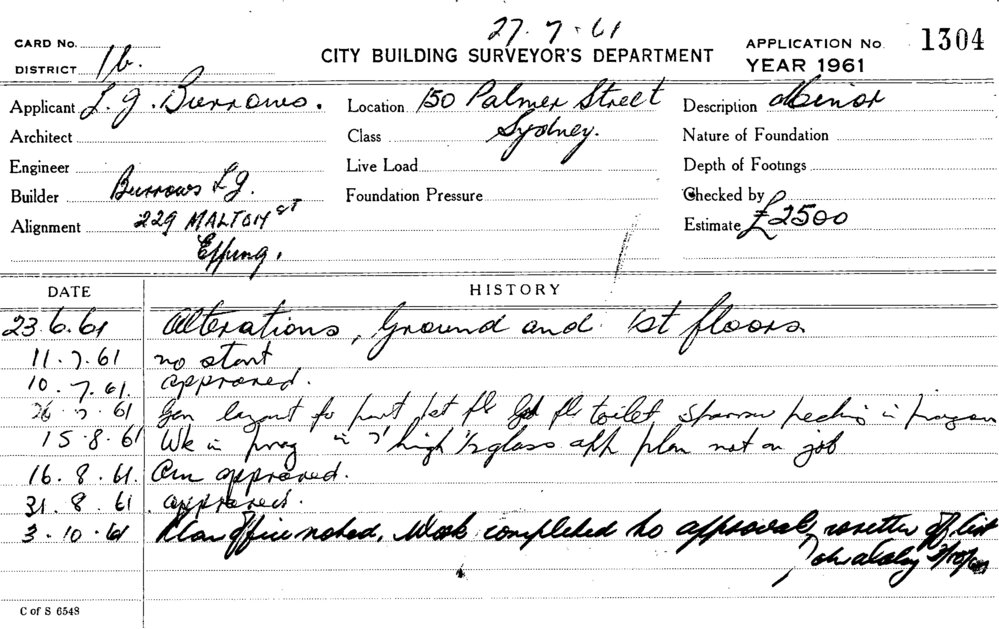 27.7.61
CARD No.
CITY BUILDING SURVEYOR'S DEPARTMENT
APPLICATION No. 1304
DISTRICT 1b.
YEAR 1961
Applicant L. J. Burrows.
Location 150 Palmer Street
Description Minor
Architect
Class Sydney.
Nature of Foundation
Engineer
Live Load
Depth of Footings
Builder Burrows L J.
Foundation Pressure
Checked by
Alignment 229 MALTON ST
Estimate £2500
Epping.
DATE
HISTORY
23.6.61 Alterations, Ground and 1st floors.
11.7.61 no start
10.7.61. approved.
26.7.61 Gen layout for part 1st flr Gd flr toilet
15.8.61 Wk in prog in 7' high 1/2 glass app plan not on job
16.8.61. Am approved.
31.8.61 approved.
3.10.61 Plan office noted, Work completed no approval,
C of S 6548